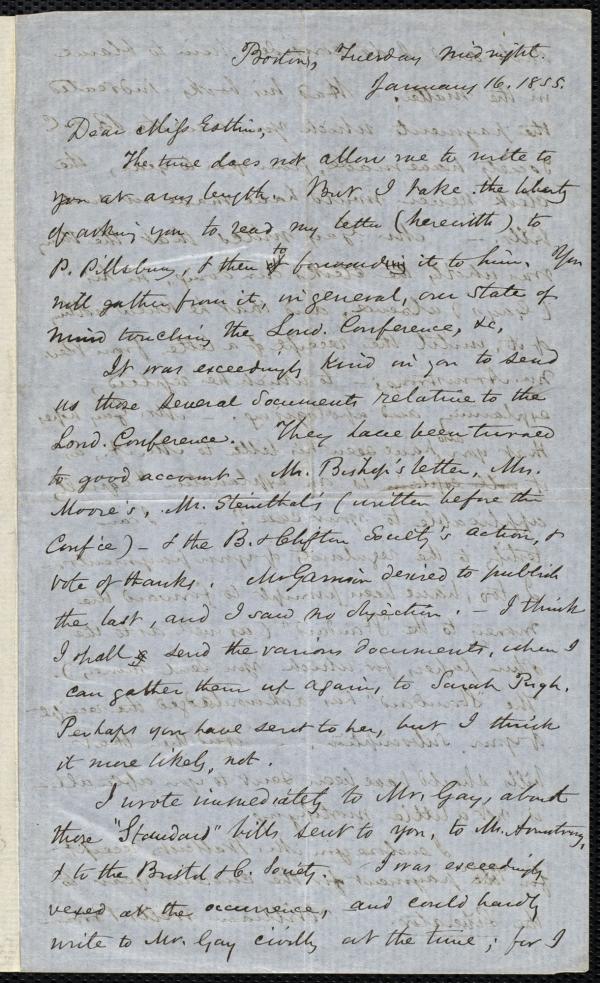 Boston, Tuesday midnight.
January 16. 1855.
Dear Miss Estlin,
The time does not allow me to write to
you at arms length. But I take the liberty
of asking you to read my letter (herewith) to
P. Pillsbury, & then to forwarding it to him. You
will gather from it, in general, our state of
mind touching the Lond. Conference, &c.
It was exceedingly kind in you to send
us those several documents relative to the
Lond. Conference. They have been turned
to good account - Mr. Bishop's letter, Mrs.
Moore's, Mr. Steinthal's (written before the
Conf'ce) - & the B. & Clifton Society's action, &
vote of thanks. Mr Garrison desired to publish
the last, and I saw no objection. - I think
I shall send the various documents, when I
can gather them up again, to Sarah Pugh.
Perhaps you have sent to her, but I think
it more likely, not.
I wrote immediately to Mr. Gay, about
those "Standard" bills sent to you, to Mr. Armstrong,
& to the Bristol & C. Society. I was exceedingly
vexed at the occurrence, and could hardly
write to Mr. Gay civilly at the time; for I